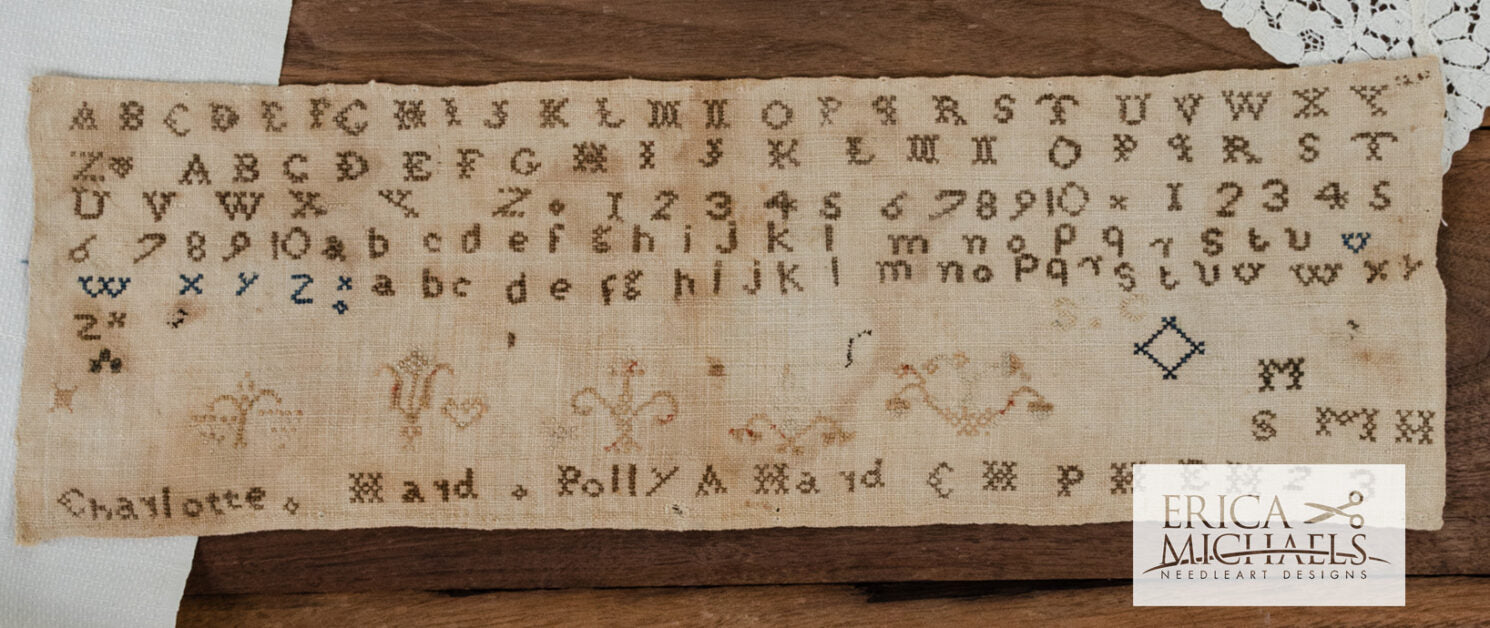 A B C D E F G H I J K L M N O P q R S T U V W X Y
Z A B C D E F G H I J K L M N O P q R S T
U V W X Y Z 1 2 3 4 5 6 7 8 9 10 × 1 2 3 4 5
6 7 8 9 10 a b c d e f g h i j k l m n o p q r s t u v
w x y z a b c d e f g h i j k l m n o p q r s t u v w x y
z
A
M
S M H
Charlotte Hard Polly A Hard C H P H E H 2 3
ERICA
MICHAELS
NEEDLEART DESIGNS